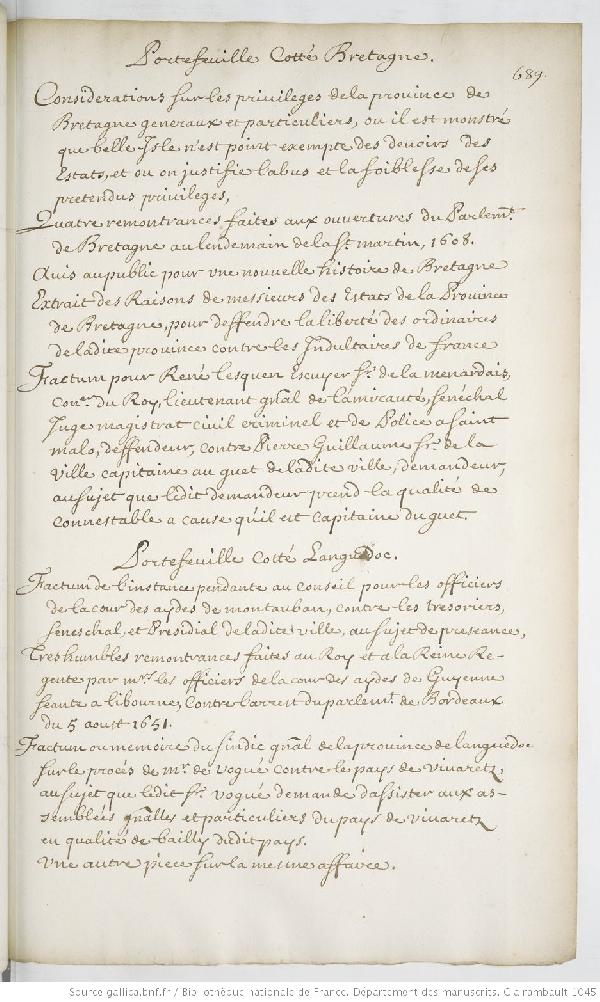 Portefeuille Cotté Bretagne.
689.
Considerations sur les privileges de la province de
Bretagne generaux et particuliers, ou il est monstré
que belle Isle n'est point exempte des devoirs des
Estats, et ou on justifie l'abus et la foiblesse de ses
pretendus privileges,
Quatre remontrances faites aux ouvertures du Parlemt.
de Bretagne au lendemain de la St martin, 1608.
Avis au public pour une nouvelle histoire de Bretagne
Extrait des Raisons de messieurs des Estats de la Province
de Bretagne, pour deffendre la liberté des ordinaires
de ladite province contre les Indultaires de france
Factum pour René Lesquen Escuyer Sr. de la menardais,
Conер. du Roy, lieutenant gñal de lamirauté, Seneschal
Juge magistrat civil criminel et de Police a Saint
malo, deffendeur, contre Pierre Guillaume Sr. de la
Ville capitaine au guet de ladite ville, demandeur,
au sujet que ledit demandeur prend la qualité de
connestable a cause qu'il est Capitaine du guet.
Portefeuille Cotté Languedoc.
Factum de l'instance pendante au Conseil pour les officiers
de la cour des aydes de montauban, contre les tresoriers,
Seneschal, et Presidial de ladite ville, au sujet de preseance,
Tres humbles remontrances faites au Roy et a la Reine Re-
gente par mrs. les officiers de la cour des aydes de Guyenne
seante a libourne, Contre l'arrest du parlemt. de Bordeaux
du 5 aoust 1651.
Factum ou memoire du sindic gñal de la province de languedoc
sur le procés de mr. de Vogué contre le pays de vivaretz
au sujet que ledit Sr. vogué demande d'assister aux as-
semblées gñalles et particuliers du pays de vivaretz
en qualité de bailly dudit pays.
Une autre piece sur la mesme affaire.
Source gallica.bnf.fr / Bibliothèque nationale de France. Département des manuscrits. Clairambault 1045